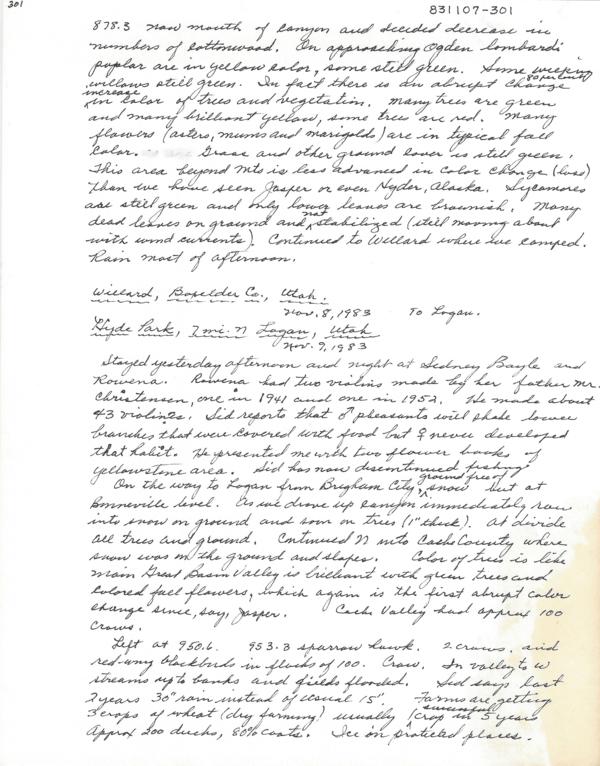 301
831107-301
878.3 now mouth of canyon and decided decrease in
numbers of cottonwood. On approaching Ogden lombardi
poplar are in yellow color, some still green. Some weeping
willows still green. In fact there is an abrupt 80 per cent change
increase in color of trees and vegetation. Many trees are green
and many brilliant yellow, some trees are red. Many
flowers (asters, mums and marigolds) are in typical fall
color. Grass and other ground cover is still green.
This area beyond Mts is less advanced in color change (loss)
than we have seen Jasper or even Hyder, Alaska. Sycamores
are still green and only lower leaves are brownish. Many
dead leaves on ground and not stabilized (still moving about
with wind currents). Continued to Willard where we camped.
Rain most of afternoon.
Willard, Boxelder Co., Utah.
Nov. 8, 1983 To Logan.
Hyde Park, 7 mi. N Logan, Utah
Nov. 9, 1983
Stayed yesterday afternoon and night at Sedney Bayle and
Rowena. Rowena had two violins made by her father Mr.
Christensen, one in 1941 and one in 1952. He made about
43 violins. Sid reports that ♂ pheasants will shake lower
branches that were covered with food but ♀ never developed
that habit. He presented me with two flower books of
Yellowstone area. Sid has now discontinued fishing
On the way to Logan from Brigham City, ground free of snow but at
Bonneville level. As we drove up canyon immediately ran
into snow on ground and soon on trees (1" thick). At divide
all trees and ground. Continued N into Cash County where
snow was on the ground and slopes. Color of trees is like
main Great Basin Valley is brilliant with green trees and
colored fall flowers, which again is the first abrupt color
change since, say, Jasper. Cache Valley had approx 100
crows.
Left at 950.6. 953.3 sparrow hawk. 2 crows. and
red-wing blackbirds in flocks of 100. Crow. In valley to W
streams up to banks and fields flooded. Sid says last
2 years 30" rain instead of usual 15". Farms are getting
3 crops of wheat (dry farming) usually 1 successful crop in 5 years
Approx 200 ducks, 80% coots. Ice on protected places.